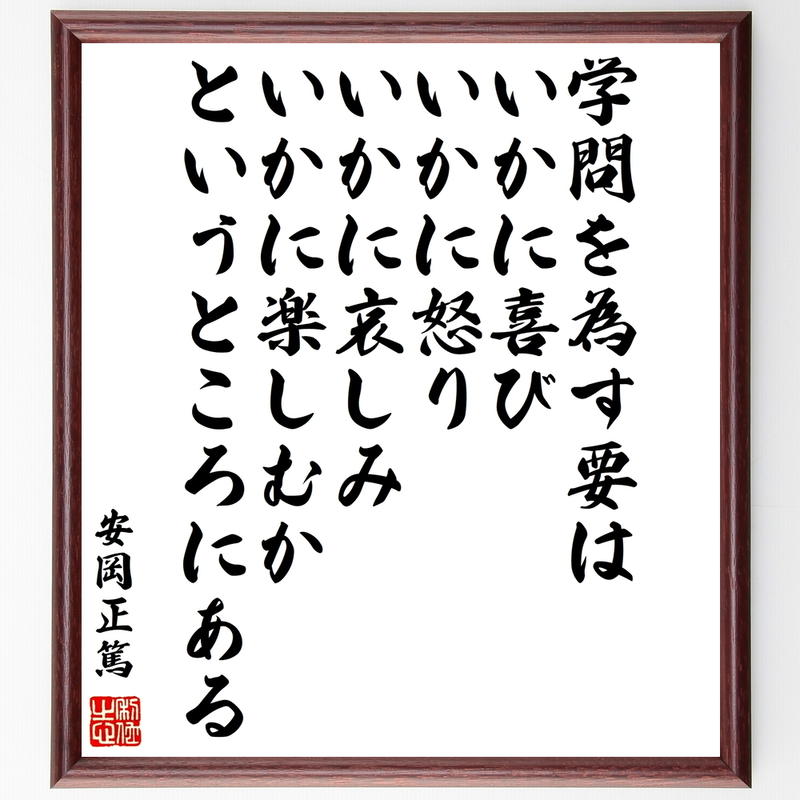 学問を為す要は
いかに喜び
いかに怒り
いかに哀しみ
いかに楽しむか
というところにある
安岡正篤